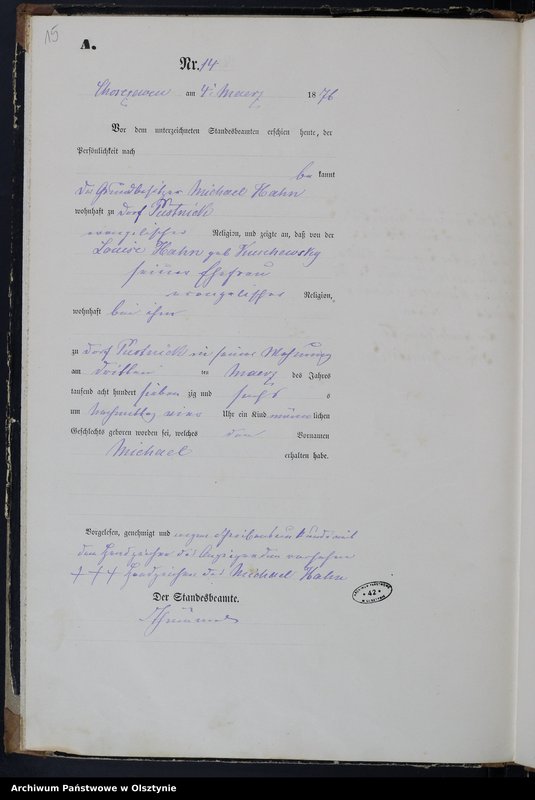 15
A.
Nr. 14
am 4ten Maerz 1876
Vor dem unterzeichneten Standesbeamten erschien heute, der
Persönlichkeit nach
bekannt
der Grundbesitzer Michael Hahn
wohnhaft zu Dorf Pustnick
evangelischer Religion, und zeigte an, daß von der
Louise Hahn geb
seiner Ehefrau
evangelischer Religion,
wohnhaft bei ihm
zu Dorf Pustnick in seiner Wohnung
am dritten ten Maerz des Jahres
tausend acht hundert siebenzig und sechs
um Nachmittag Uhr ein Kind männlichen
Geschlechts geboren worden sei, welches den Vornamen
Michael erhalten habe.
Vorgelesen, genehmigt und wegen mit
dem Handzeichen des Anzeigenden versehen
+ + + Handzeichen des Michael Hahn
Der Standesbeamte.
ARCHIWUM PAŃSTWOWE
* 42 *
W OLSZTYNIE
Archiwum Państwowe w Olsztynie